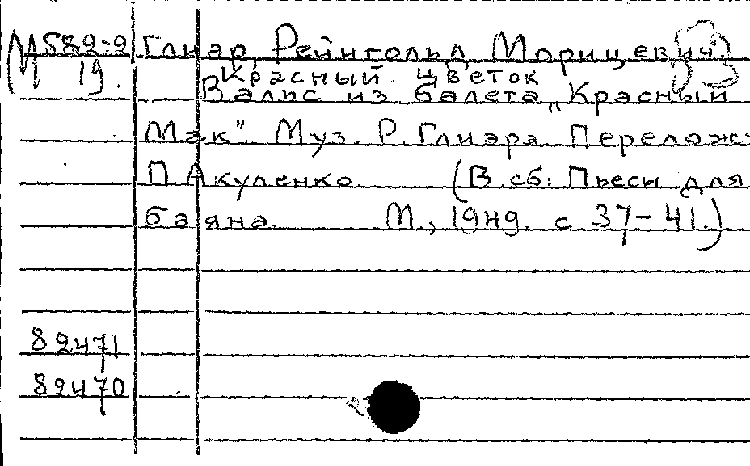 М 582-2 Глиэр, Рейнгольд Морицевич
М 19. Красный цветок
Вальс из балета „Красный
Мак" Муз. Р. Глиэра. Перелож.
П Акуленко (В сб: Пьесы для
баяна М., 1949. с 37-41.)
82471
82470